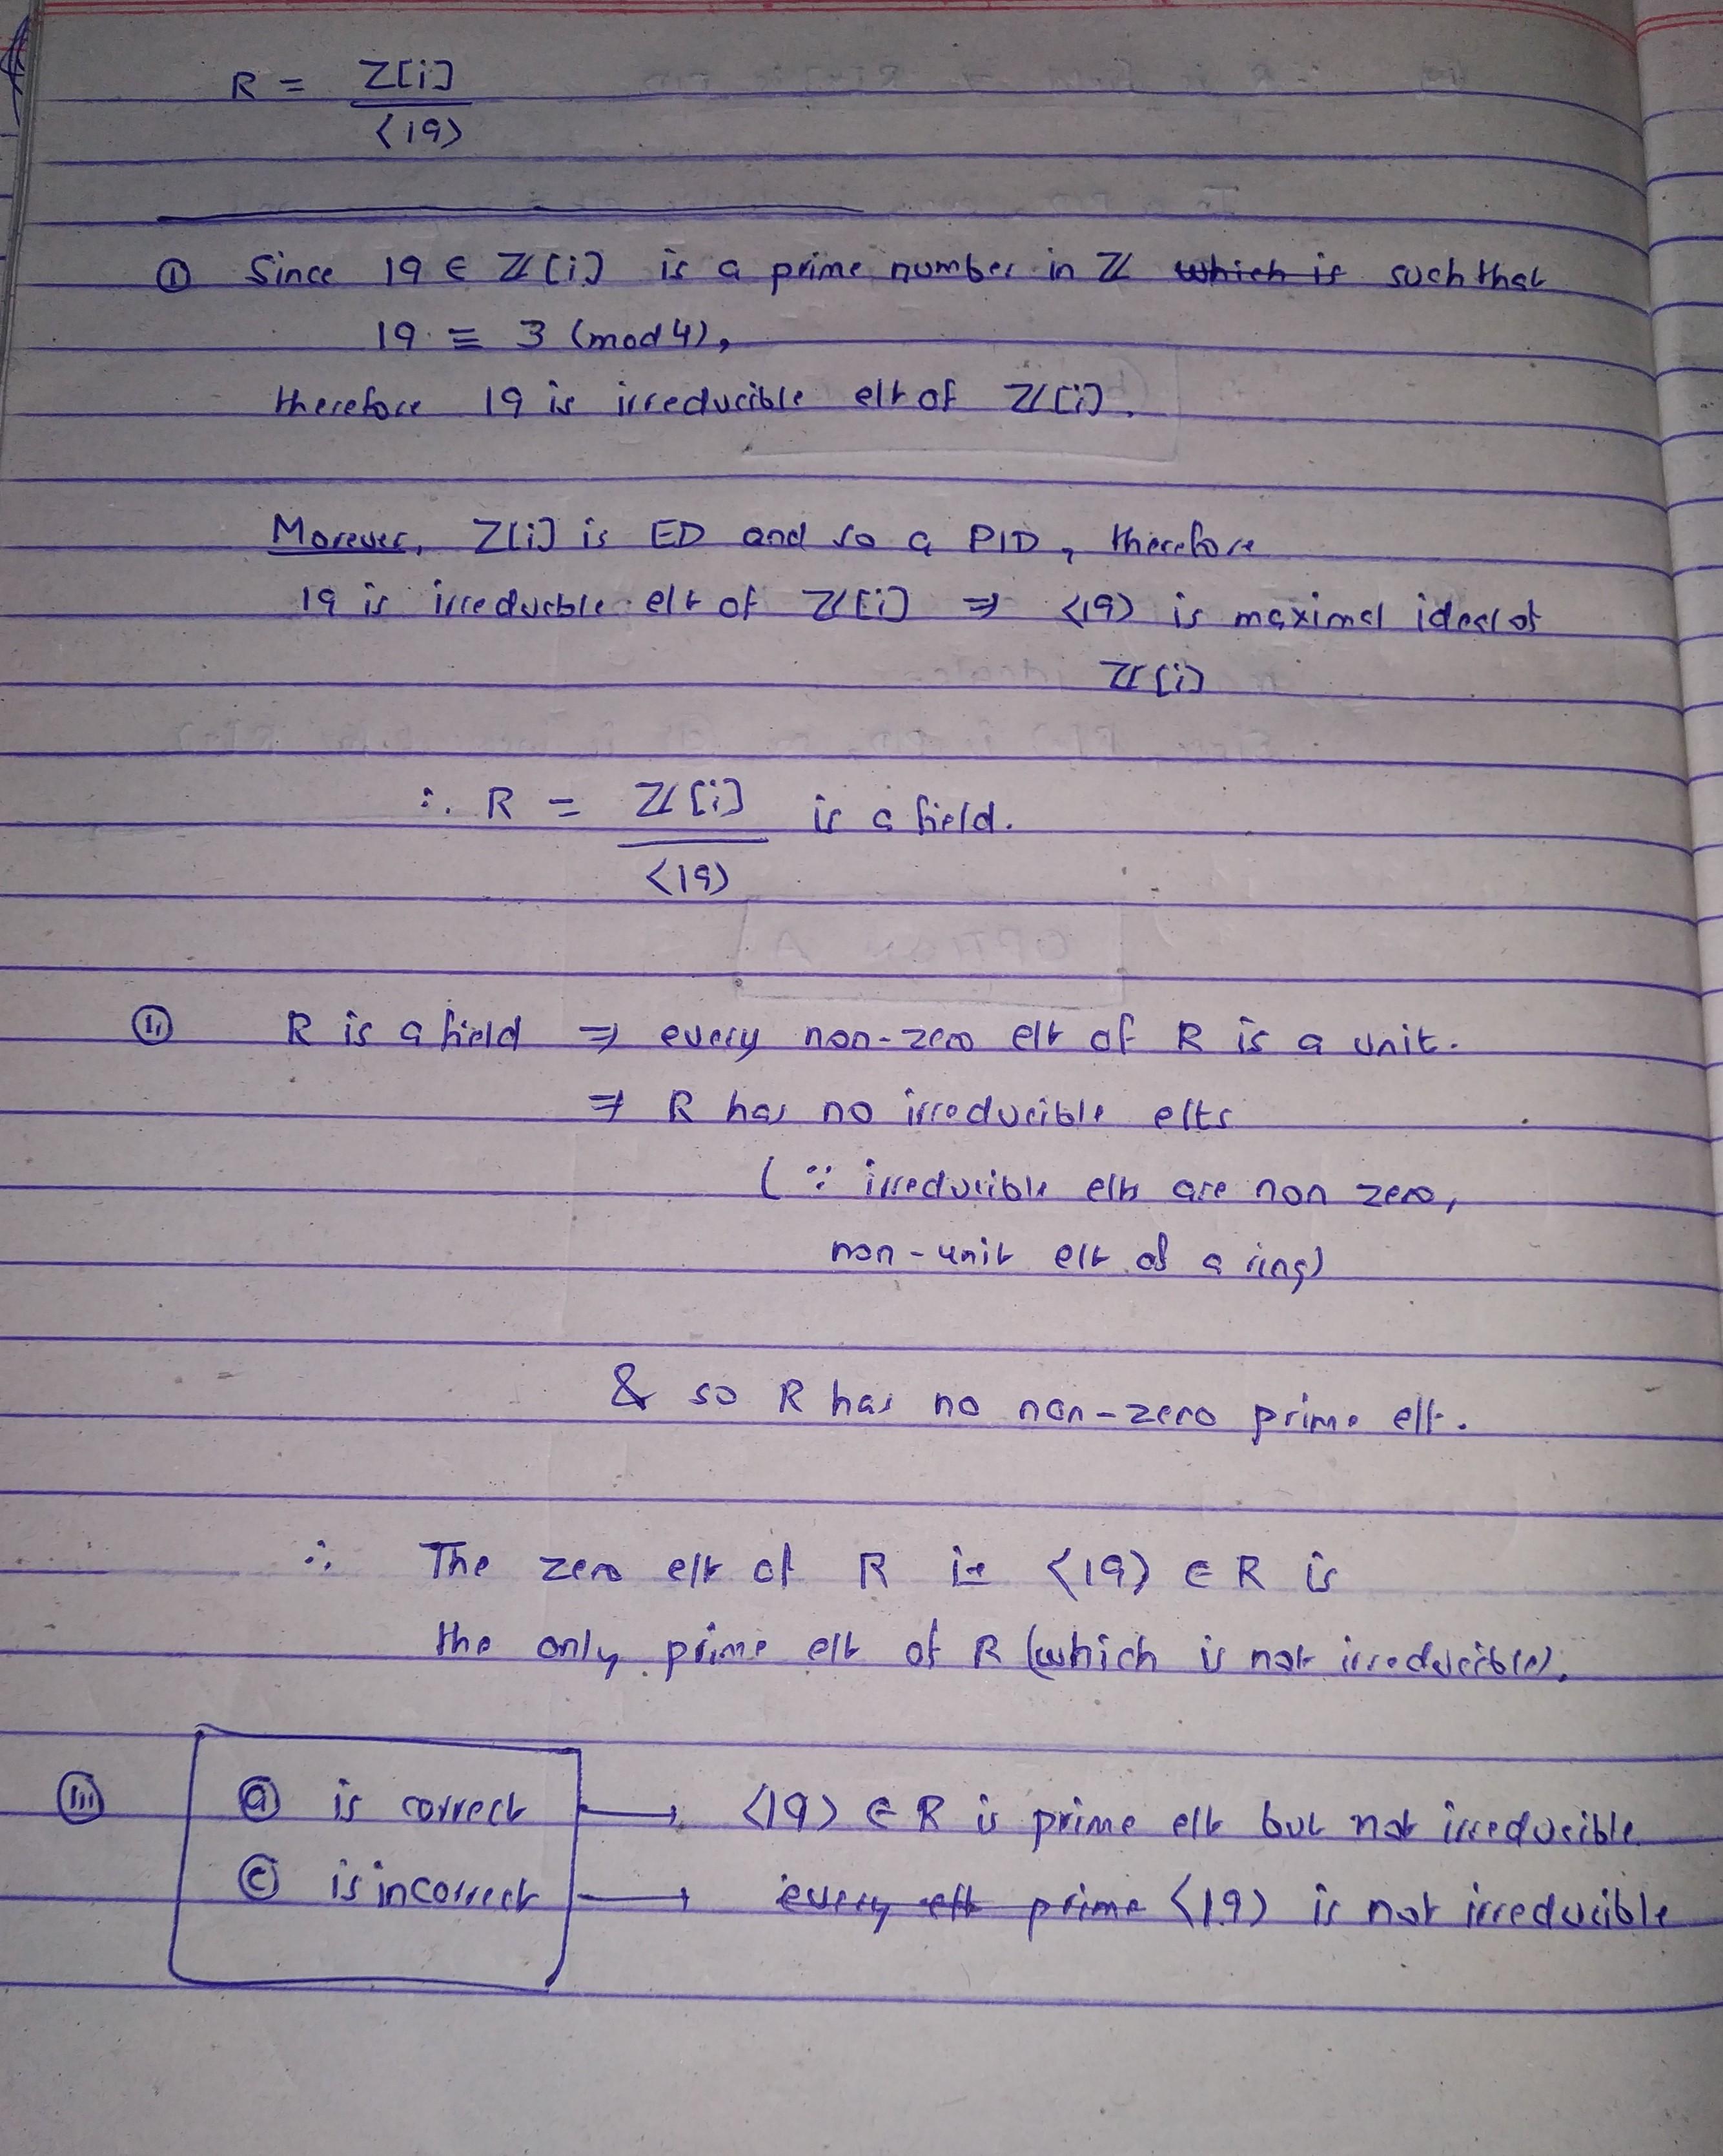 R = Z[i]
<19>
① Since 19 ∈ Z[i] is a prime number in Z which is such that
19 ≡ 3 (mod 4),
therefore 19 is irreducible elt of Z[i].
Morever, Z[i] is ED and so a PID, therefore
19 is irreducible elt of Z[i] ⇒ <19> is maximal ideal of
Z[i]
∴ R = Z[i] is a field.
<19>
ⓘⓘ R is a field ⇒ every non-zero elt of R is a unit.
⇒ R has no irreducible elts
(∵ irreducible elts are non zero,
non-unit elt of a ring)
& so R has no non-zero prime elt.
∴ The zero elt of R ie <19> ∈ R is
the only prime elt of R (which is not irreducible).
(iii) ⓐ is correct → <19> ∈ R is prime elt but not irreducible
ⓒ is incorrect → every elt prime <19> is not irreducible